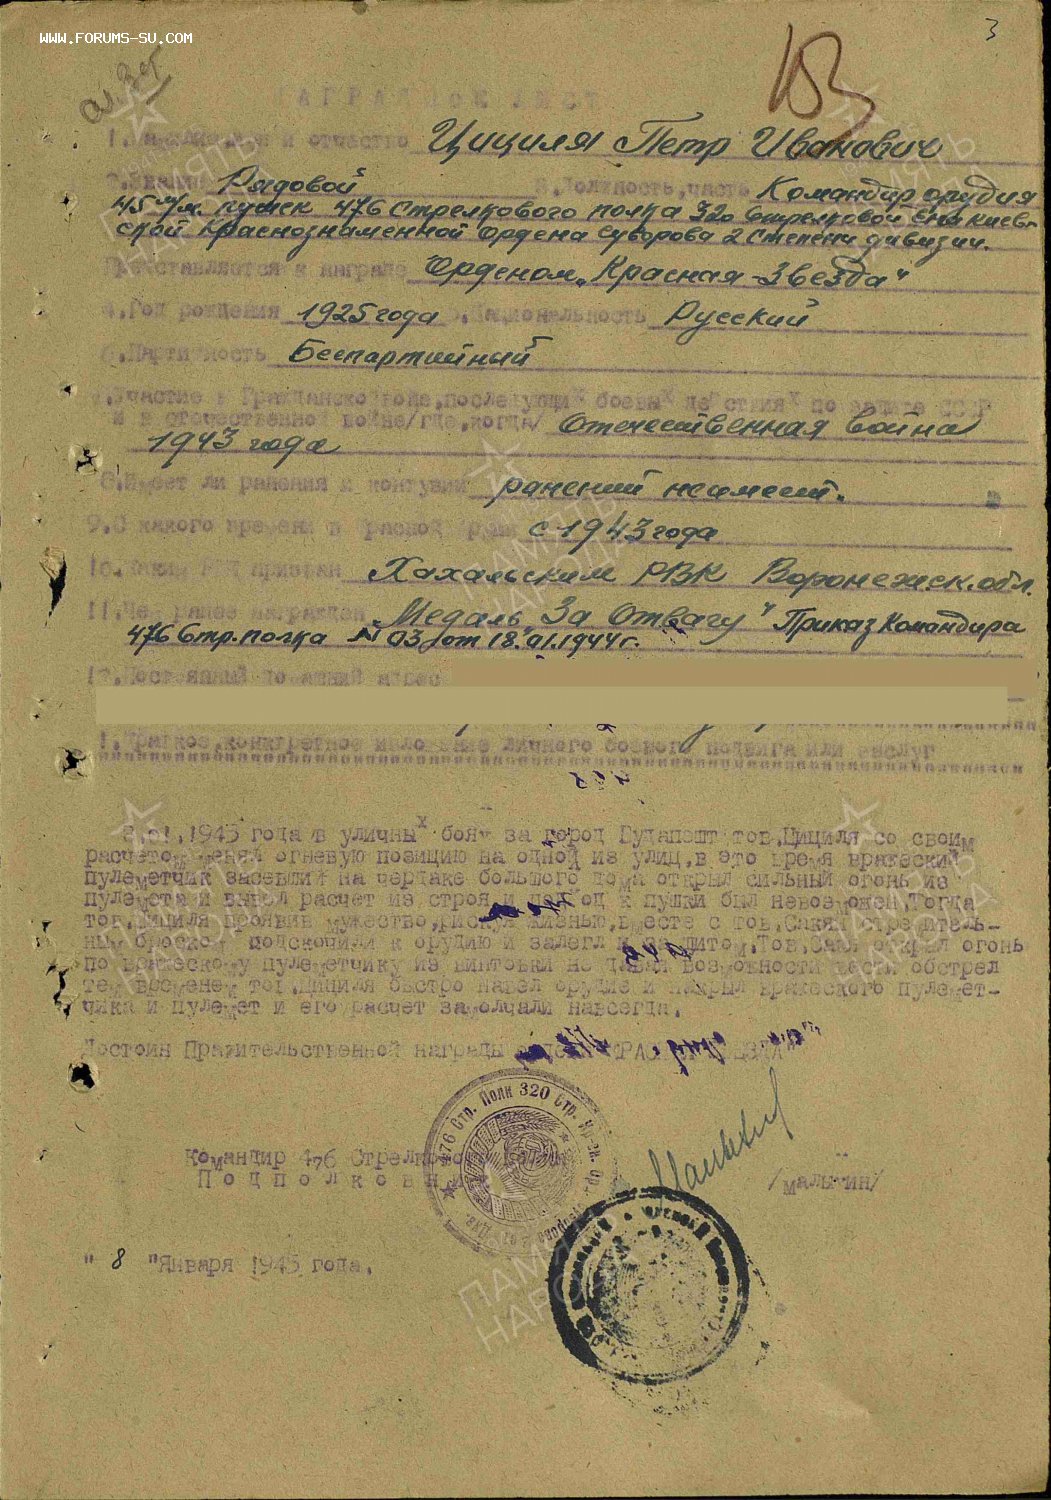 WWW.FORUMS-SU.COM
3
НАГРАДНОЙ ЛИСТ
1. Фамилия, имя и отчество Цициля Петр Иванович
2. Звание Рядовой 3. Должность, часть Командир орудия
45 м/м. пушек 476 Стрелкового полка 320 Стрелковой Енакиев-
ской Краснознаменной Ордена Суворова 2 Степени дивизии.
Представляется к награде Орденом „Красная Звезда"
4. Год рождения 1925 года 5. Национальность Русский
6. Партийность Беспартийный
7. Участие в Гражданской войне, последующих боевых действиях по защите СССР
и в отечественной войне /где, когда/ Отечественная война
1943 года
8. Имеет ли ранения и контузии ранений не имеет.
9. С какого времени в Красной Армии с 1943 года
10. Каким РВК призван РВК Воронежск. обл.
11. Чем ранее награжден Медаль „За Отвагу" Приказ Командира
476 Стр. полка № 03 от 18.01.1944 г.
12. Постоянный домашний адрес
1. Краткое, конкретное изложение личного боевого подвига или заслуг
1945 года в уличных боях за город Будапешт тов. Цициля со своим
расчетом менял огневую позицию на одной из улиц, в это время вражеский
пулеметчик засевший на чердаке большого дома открыл сильный огонь из
пулемета и вывел расчет из строя и подход к пушки был невозможен. Тогда
тов. Цициля проявив мужество, рискуя жизнью, вместе с тов. стремитель-
ным броском подскочили к орудию и залегли за щитом. Тов. открыл огонь
по вражескому пулеметчику из винтовки не давая возможности вести обстрел
тем временем тов. Цициля быстро навел орудие и накрыл вражеского пулемет-
чика и пулемет и его расчет замолчали навсегда.
Достоин Правительственной награды орден "КРАСНАЯ ЗВЕЗДА"
476 Стр. Полк 320 Стр.
Командир 476 Стрелкового полка
Подполковник /Малыгин/
" 8 "Января 1945 года.
ПАМЯТЬ НАРОДА